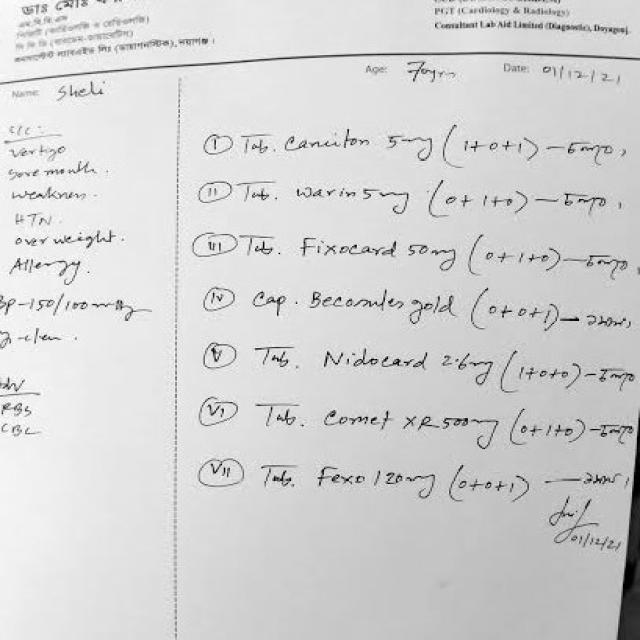 ডাঃ মোঃ
এম.বি.বি.এস
PGT (Cardiology & Radiology)
Consultant Lab Aid Limited (Diagnostic), Doyagonj.
Name: Sheli
Age: 70yrs
Date: 01/12/21
c/c:
Vertigo
Sore mouth.
Weakness.
HTN.
over weight.
Allergy.
BP-150/100mmHg
RBS
CBC
I Tab. 5mg (1+0+1) — চলবে,
II Tab. Warin 5mg (0+1+0) — চলবে,
III Tab. Fixocard 50mg (0+1+0) — চলবে,
IV Cap. Becosules gold (0+0+1) —
V Tab. Nidocard 2.6mg (1+0+0) — চলবে
VI Tab. Comet XR 500mg (0+1+0) — চলবে
VII Tab. Fexo 120mg (0+0+1) —
01/12/21